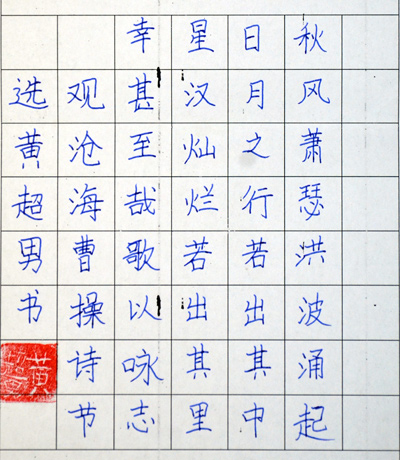 秋风萧瑟洪波涌起
日月之行若出其中
星汉灿烂若出其里
幸甚至哉歌以咏志
观沧海曹操诗节
选黄超男书